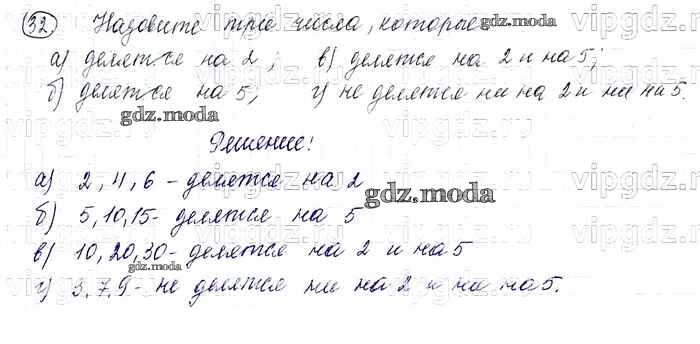 32 Назовите три числа, которые
а) делятся на 2; в) делятся на 2 и на 5;
б) делятся на 5; г) не делятся ни на 2 и ни на 5.
Решение!
а) 2, 4, 6 - делятся на 2
б) 5, 10, 15 - делятся на 5
в) 10, 20, 30 - делятся на 2 и на 5
г) 3, 7, 9 - не делятся ни на 2 и ни на 5.
gdz.moda
gdz.moda
gdz.moda
gdz.moda
vipgdz.ru